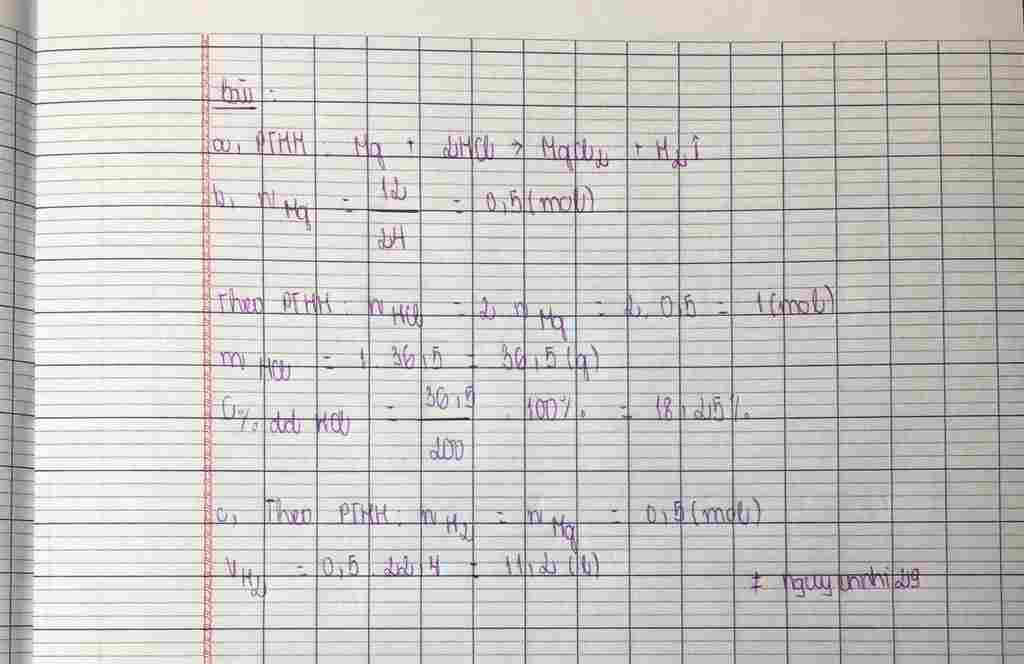 bài :
a, PTHH : Mg + 2HCl → MgCl₂ + H₂↑
b, n Mg = 12/24 = 0,5 (mol)
Theo PTHH : n HCl = 2 n Mg = 2. 0,5 = 1 (mol)
m HCl = 1. 36,5 = 36,5 (g)
C% dd HCl = 36,5/200 . 100% = 18,25%
c, Theo PTHH : n H₂ = n Mg = 0,5 (mol)
V H₂ = 0,5 . 22,4 = 11,2 (l)